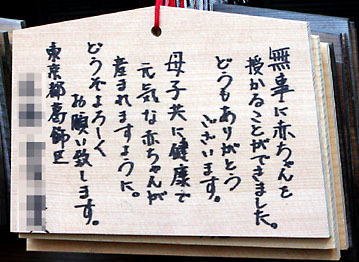 無事に赤ちゃんを
授かることができました。
どうもありがとう
ございます。
母子共に健康で
元気な赤ちゃんが
産まれますように。
どうぞよろしく
お願い致します。
東京都葛飾区